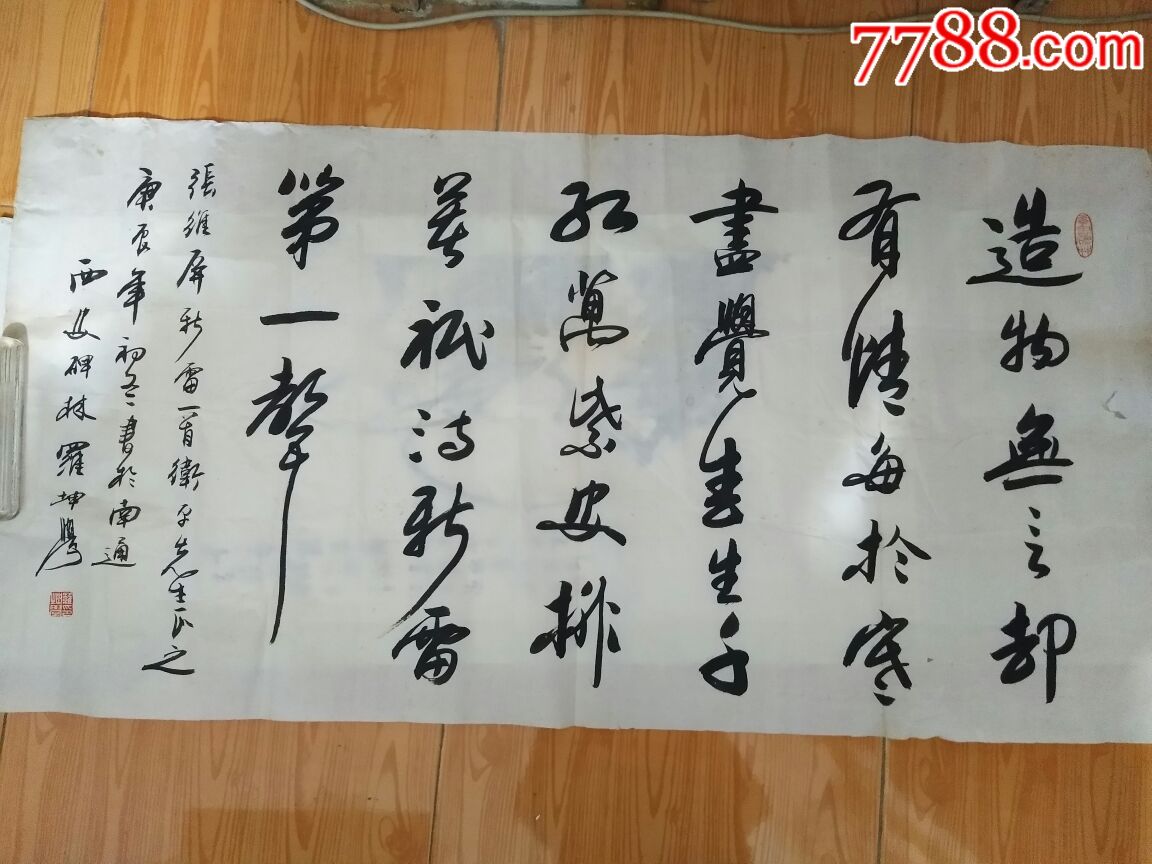 7788.com
造物無言却
有情每於寒
盡覺春生千
紅萬紫安排
著祇待新雷
第一聲
張維屏新雷一首衛平先生正之
庚辰年初冬書於南通
西安碑林羅坤學